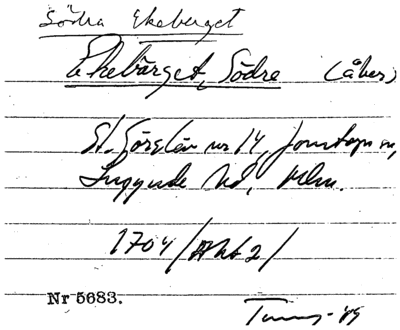 Södra Ekeberget
Ekebärget, Södra (åker)
St. Görslöv nr 14, Jonstorps sn,
Luggude hd, Mlm.
1704/Akt 2/
Nr 5683.